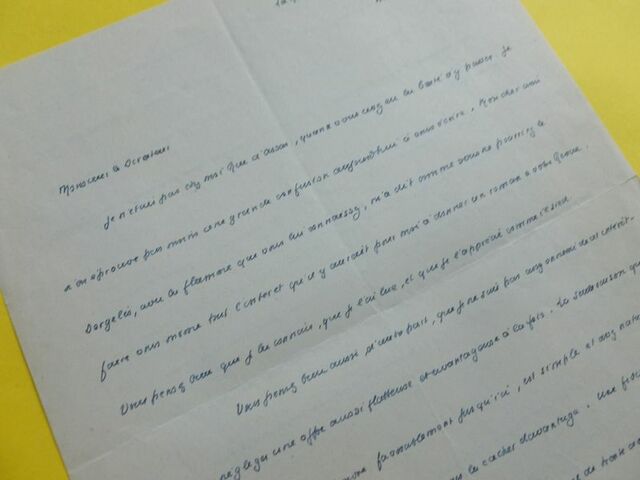 Monsieur le Directeur
Je n'étais pas chez moi quand vous avez eu la bonté d'y passer. Je
n'en éprouve pas moins une grande confusion aujourd'hui à vous écrire. Mon cher ami
Dorgelès, avec la flamme que vous lui connaissez, m'a dit comme vous ne pourriez le
faire vous même tout l'intérêt qu'il y aurait pour moi à donner un roman à votre Revue.
Vous pensez bien que je la connais, que je l'ai lue, et que je l'apprécie comme
Vous pensez bien aussi d'autre part, que je ne suis pas assez ennemi de ses intérêts
négliger une offre aussi flatteuse et avantageuse à la fois. La raison qui
jusqu'ici, est simple et
cacher davantage. une
de